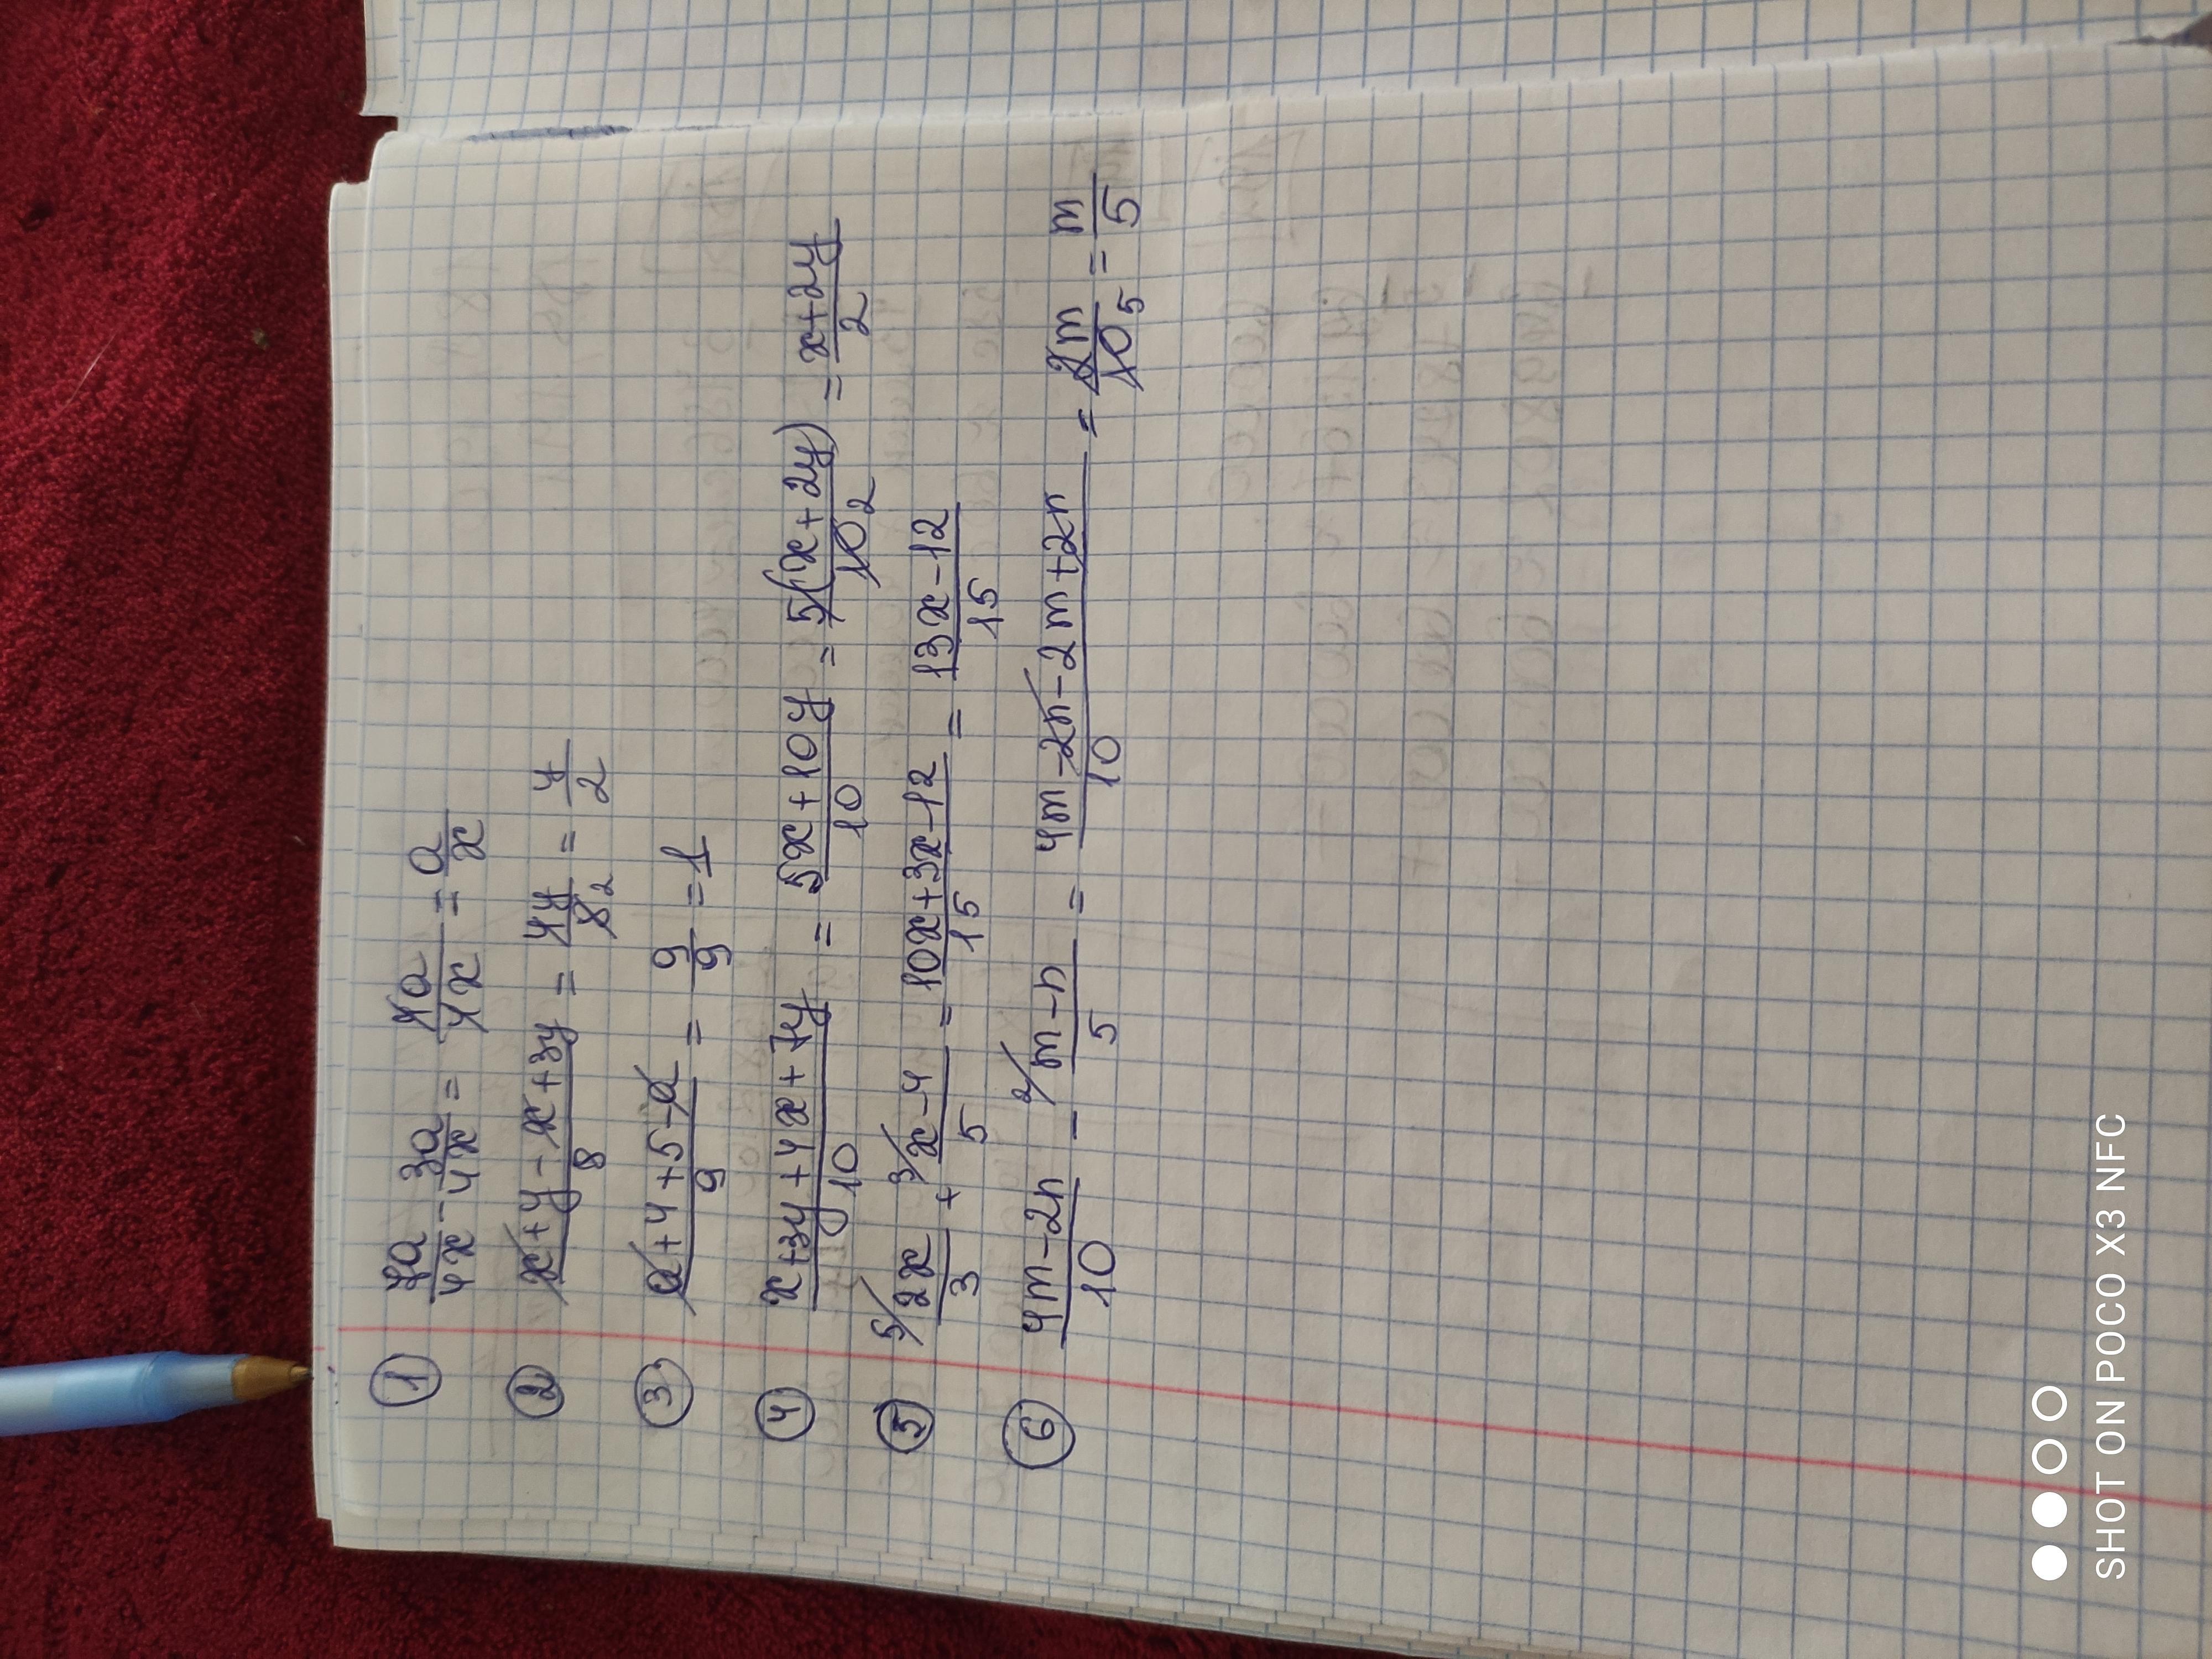 ① 7a/4x - 3a/4x = 4a/4x = a/x
② x+y-x+3y/8 = 4y/8 2 = y/2
③ a+4+5-a/9 = 9/9 = 1
④ x+3y+4x+7y/10 = 5x+10y/10 = 5(x+2y)/10 2 = x+2y/2
⑤ 5/ 2x/3 + 3/ x-4/5 = 10x+3x-12/15 = 13x-12/15
⑥ 4m-2n/10 - 2/ m-n/5 = 4m-2n-2m+2n/10 = 2m/10 5 = m/5
SHOT ON POCO X3 NFC